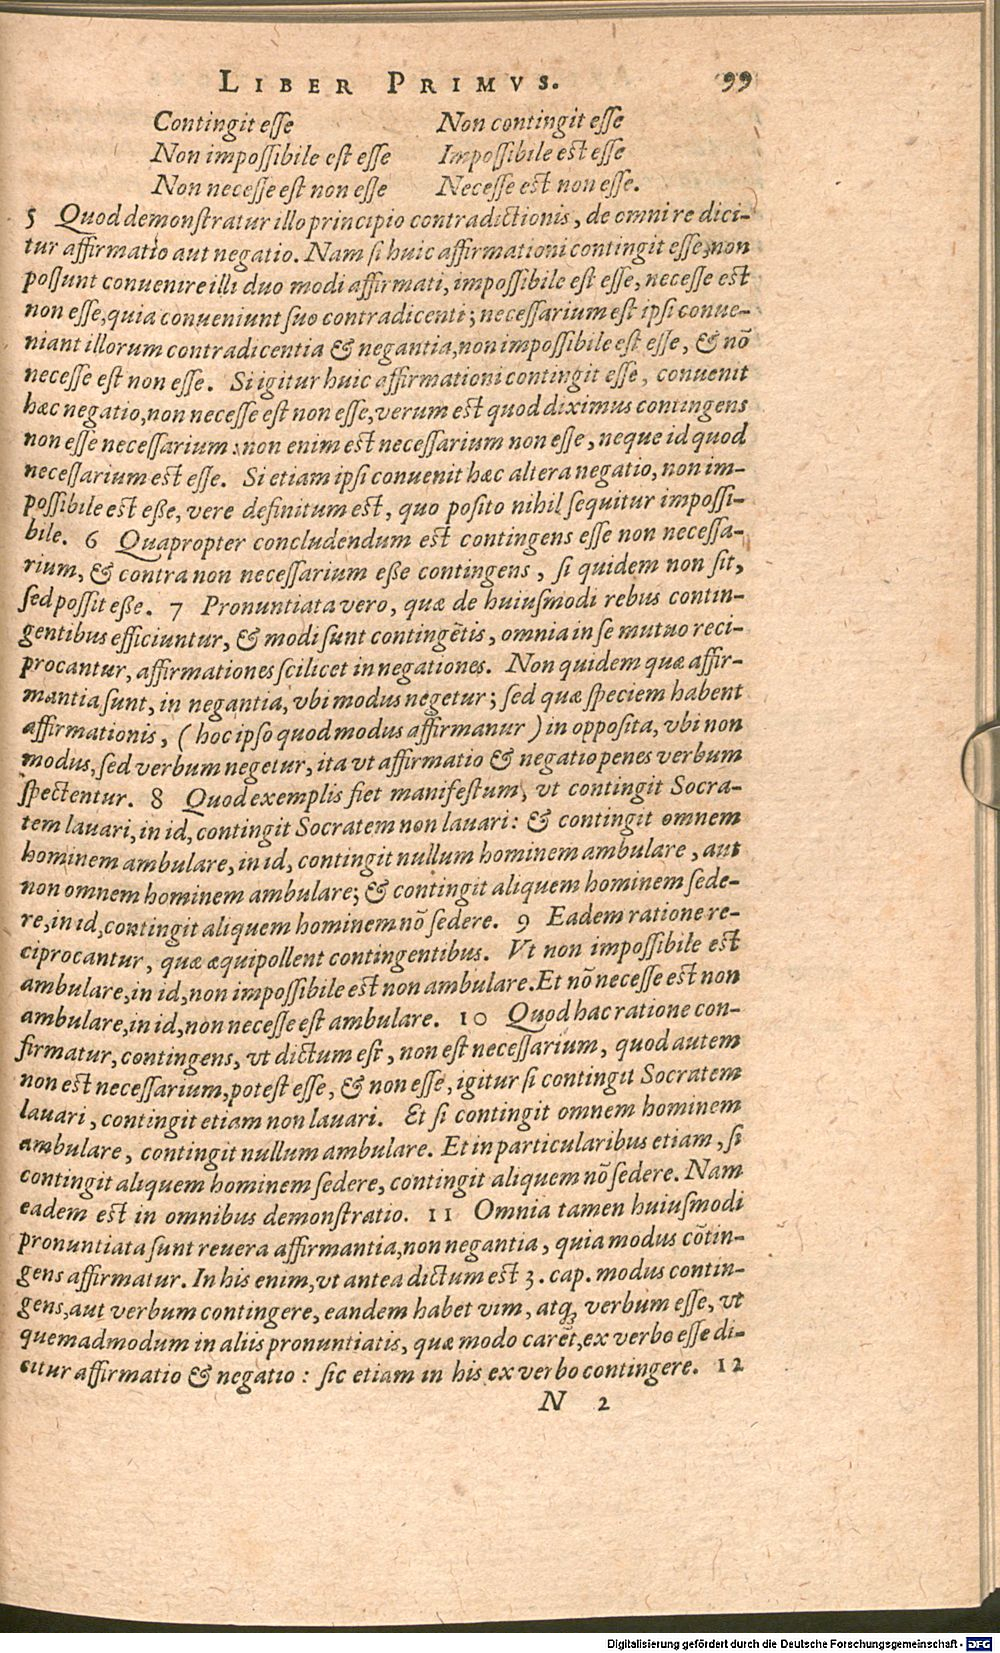 LIBER PRIMVS. 99
Contingit esse Non contingit esse
Non impossibile est esse Impossibile est esse
Non necesse est non esse Necesse est non esse.
5 Quod demonstratur illo principio contradictionis, de omni re dici-
tur affirmatio aut negatio. Nam si huic affirmationi contingit esse, non
possunt convenire illi duo modi affirmati, impossibile est esse, necesse est
non esse, quia conveniunt suo contradicenti; necessarium est ipsi conue-
niant illorum contradicentia & negantia, non impossibile est esse, & nõ
necesse est non esse. Si igitur huic affirmationi contingit esse, convenit
hæc negatio, non necesse est non esse, verum est quod diximus contingens
non esse necessarium: non enim est necessarium non esse, neque id quod
necessarium est esse. Si etiam ipsi convenit hæc altera negatio, non im-
possibile est eße, vere definitum est, quo posito nihil sequitur impossi-
bile. 6 Quapropter concludendum est contingens esse non necessa-
rium, & contra non necessarium eße contingens, si quidem non sit,
sed possit eße. 7 Pronuntiata vero, quæ de huiusmodi rebus contin-
gentibus efficiuntur, & modi sunt contingẽtis, omnia in se mutuo reci-
procantur, affirmationes scilicet in negationes. Non quidem quæ affir-
mantia sunt, in negantia, vbi modus negetur; sed quæ speciem habent
affirmationis, (hoc ipso quod modus affirmanur) in opposita, vbi non
modus, sed verbum negetur, ita vt affirmatio & negatio penes verbum
spectentur. 8 Quod exemplis fiet manifestum, vt contingit Socra-
tem lauari, in id, contingit Socratem non lauari: & contingit omnem
hominem ambulare, in id, contingit nullum hominem ambulare, aut
non omnem hominem ambulare; & contingit aliquem hominem sede-
re, in id, contingit aliquem hominem nõ sedere. 9 Eadem ratione re-
ciprocantur, quæ æquipollent contingentibus. Vt non impossibile est
ambulare, in id, non impossibile est non ambulare. Et nõ necesse est non
ambulare, in id, non necesse est ambulare. 10 Quod hac ratione con-
firmatur, contingens, vt dictum est, non est necessarium, quod autem
non est necessarium, potest esse, & non esse, igitur si contingit Socratem
lauari, contingit etiam non lauari. Et si contingit omnem hominem
ambulare, contingit nullum ambulare. Et in particularibus etiam, si
contingit aliquem hominem sedere, contingit aliquem nõ sedere. Nam
eadem est in omnibus demonstratio. 11 Omnia tamen huiusmodi
pronuntiata sunt revera affirmantia, non negantia, quia modus cõtin-
gens affirmatur. In his enim, vt antea dictum est 3. cap. modus contin-
gens, aut verbum contingere, eandem habet vim, atq; verbum esse, vt
quemadmodum in aliis pronuntiatis, quæ modo carẽt, ex verbo esse di-
citur affirmatio & negatio: sic etiam in his ex verbo contingere. 12
N 2
Digitalisierung gefördert durch die Deutsche Forschungsgemeinschaft - DFG